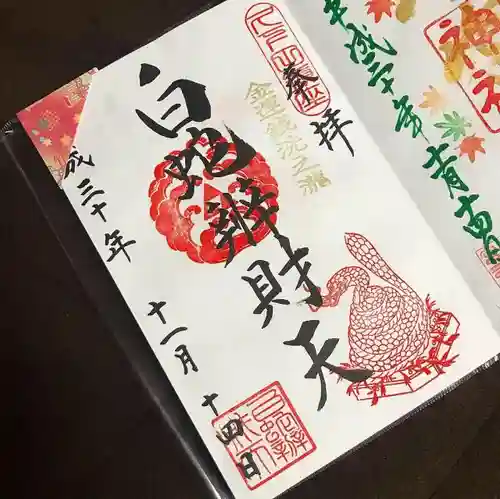 奉拝
金運銭洗之瀧
白蛇辨財天
成三十年
十一月十四日
神社
平成三十年十一月十四日